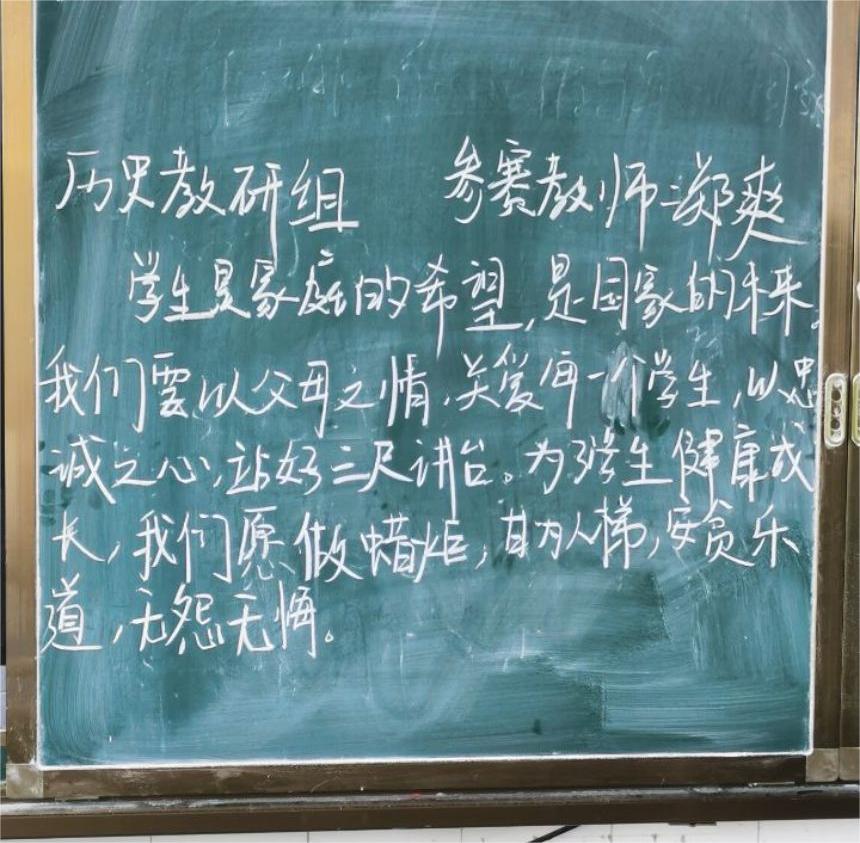 历史教研组 参赛教师:郑爽
学生是家庭的希望,是国家的未来。
我们要以父母之情,关爱每一个学生,以忠
诚之心,站好三尺讲台。为了学生健康成
长,我们愿做蜡炬,甘为人梯,安贫乐
道,无怨无悔。